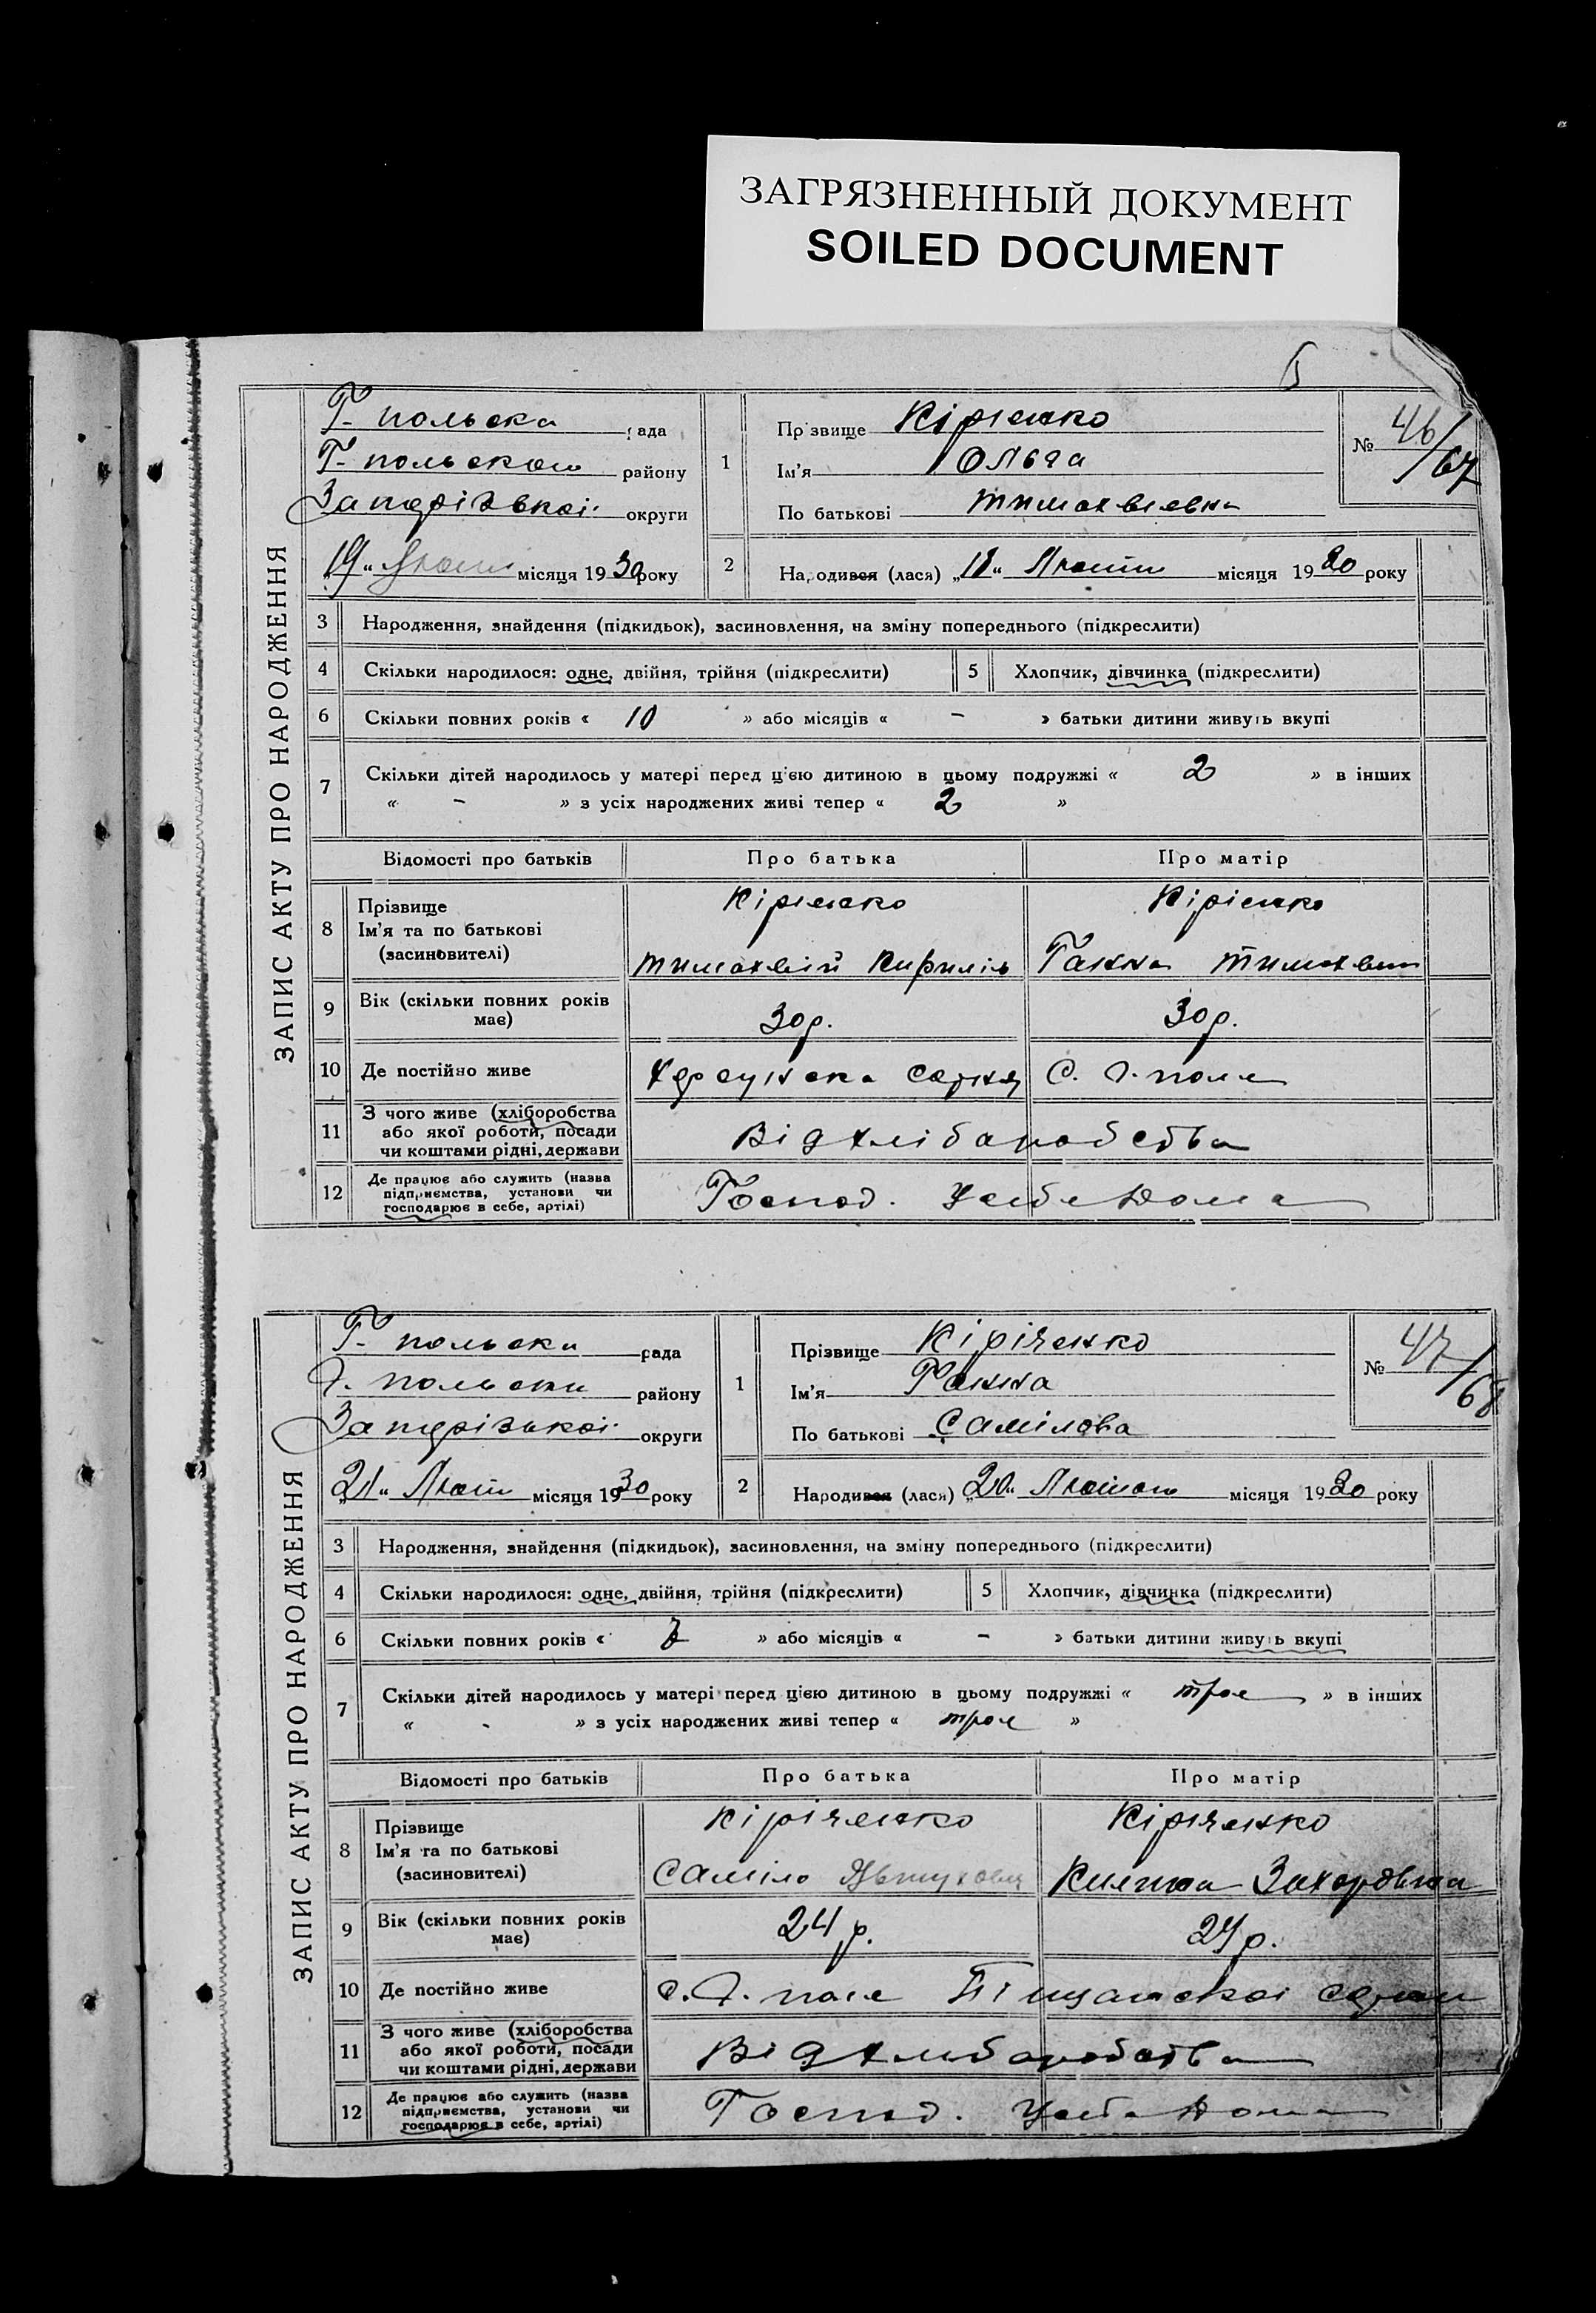 ЗАГРЯЗНЕННЫЙ ДОКУМЕНТ
SOILED DOCUMENT
ЗАПИС АКТУ ПРО НАРОДЖЕННЯ
Г-польска рада
Г-польском району
Запорізької округи
"19" Лютого місяця 1930 року
1
Прізвище Кірієнко
Ім'я Ольга
По батькові
№ 46/67
2
Народився (лася) „18“ місяця 1930 року
3 Народження, знайдення (підкидьок), засиновлення, на зміну попереднього (підкреслити)
4 Скільки народилося: одне, двійня, трійня (підкреслити) 5 Хлопчик, дівчинка (підкреслити)
6 Скільки повних років « 10 » або місяців « - » батьки дитини живуть вкупі
7 Скільки дітей народилось у матері перед цією дитиною в цьому подружжі « 2 » в інших
« - » з усіх народжених живі тепер « 2 »
Відомості про батьків Про батька Про матір
8 Прізвище
Ім'я та по батькові
(засиновителі)
Кірієнко Кірієнко
Ганна
9 Вік (скільки повних років
має)
30 р. 30 р.
10 Де постійно живе
С. Г. поле
11 З чого живе (хліборобства
або якої роботи, посади
чи коштами рідні, держави
Від хліборобства
12 Де працює або служить (назва
підприємства, установи чи
господарює в себе, артілі)
Господ. У себе дома
ЗАПИС АКТУ ПРО НАРОДЖЕННЯ
Г-польска рада
Г. польски району
Запорізької округи
„21“ Лют місяця 1930 року
1
Прізвище Кіріченко
Ім'я Ганна
По батькові Самілова
№ 47/68
2
Народився (лася) „20“ місяця 1930 року
3 Народження, знайдення (підкидьок), засиновлення, на зміну попереднього (підкреслити)
4 Скільки народилося: одне, двійня, трійня (підкреслити) 5 Хлопчик, дівчинка (підкреслити)
6 Скільки повних років « 7 » або місяців « - » батьки дитини живуть вкупі
7 Скільки дітей народилось у матері перед цією дитиною в цьому подружжі « трое » в інших
« - » з усіх народжених живі тепер « трое »
Відомості про батьків Про батька Про матір
8 Прізвище
Ім'я та по батькові
(засиновителі)
Кіріченко Кіріченко
Саміло
9 Вік (скільки повних років
має)
24 р. 24 р.
10 Де постійно живе
с. Г. поле
11 З чого живе (хліборобства
або якої роботи, посади
чи коштами рідні, держави
Від хліборобства
12 Де працює або служить (назва
підприємства, установи чи
господарює в себе, артілі)
Господ. У себе дома